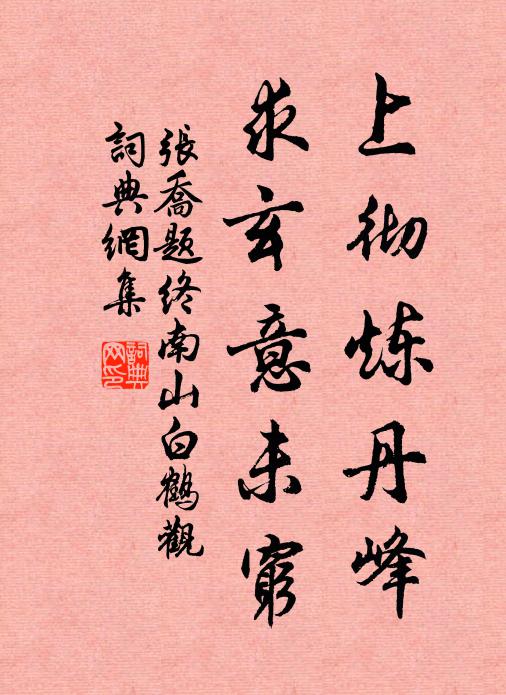 上彻炼丹峰
求玄意未窮
張喬题终南山白鶴觀
詞典網集
詞典网印